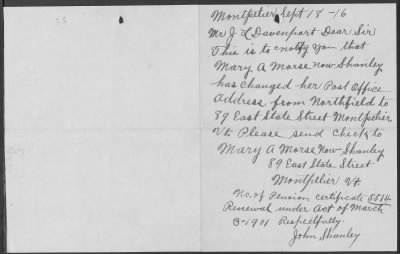 Montpelier Sept 18 - 16
Mr J L Davenport Dear Sir
This is to notify you that
Mary A Morse now Shanley
has changed her Post Office
Address from Northfield to
89 East State Street Montpelier
Vt. Please send check to
Mary A Morse Now Shanley
89 East State Street
Montpelier Vt.
No. of Pension certificate 5514
Renewal under Act of March
3-1901 Respectfully.
John Shanley